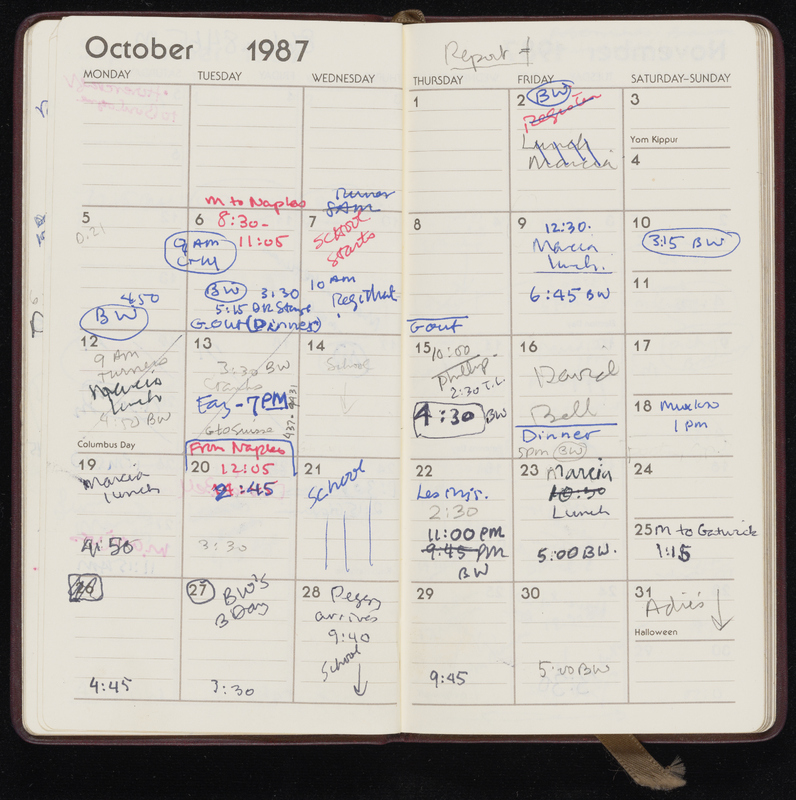 October 1987
Report #
MONDAY
TUESDAY
WEDNESDAY
THURSDAY
FRIDAY
SATURDAY–SUNDAY
1
2 BW
Register
Lunch
Marcia
3
Yom Kippur
4
5
450
BW
M to Naples
6 8:30-
9 AM 11:05
BW 3:30
5:15 DR
G out (Dinner)
8 AM
7
School
starts
10 AM
8
G out
9 12:30.
Marcia
lunch.
6:45 BW
10
3:15 BW
11
12
9 AM
Marcia
lunch
4:50 BW
Columbus Day
13
3:30 BW
7 PM
G to Suisse
437-9931
14
School
15 10:00
Phillip
2:30 T.L.
4:30 BW
16
David
Bell
Dinner
5pm BW
17
18
1 pm
19
Marcia
lunch
4:50
From Naples
20 12:05
2:45
3:30
21
School
22
Les Mis.
2:30
11:00 PM
9:45 PM
BW
23 Marcia
10:30
Lunch
5:00 BW.
24
25 M to Gatwick
1:15
26
4:45
27 BW'S
B Day
3:30
28 Peggy
arrives
9:40
School
29
9:45
30
5:00 BW
31
Adie's
Halloween